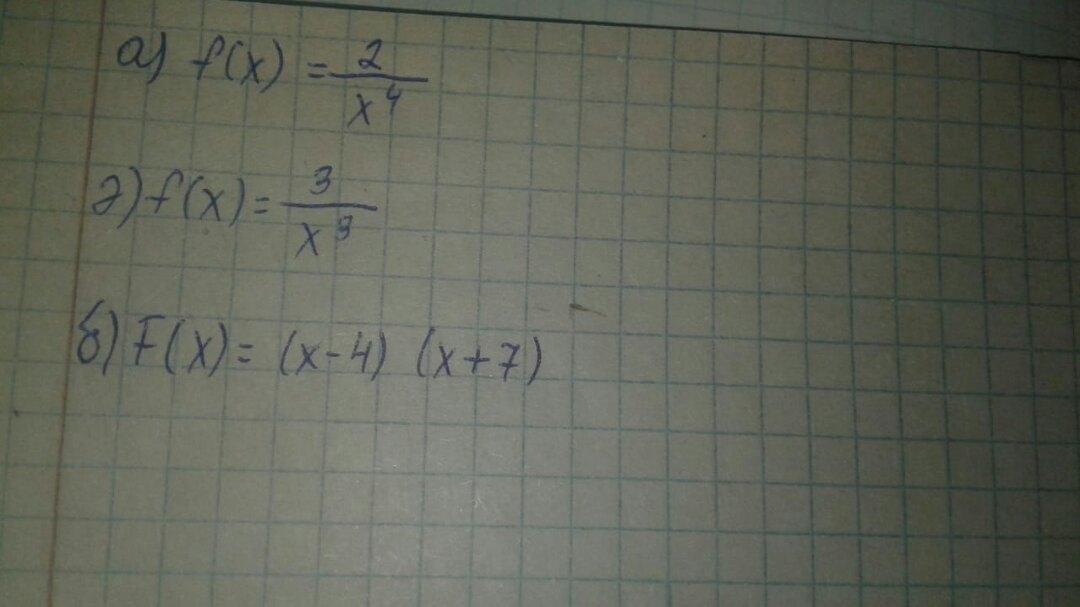 а) f(x) = 2/x⁴
ә) f(x) = 3/x³
б) F(x) = (x-4) (x+7)